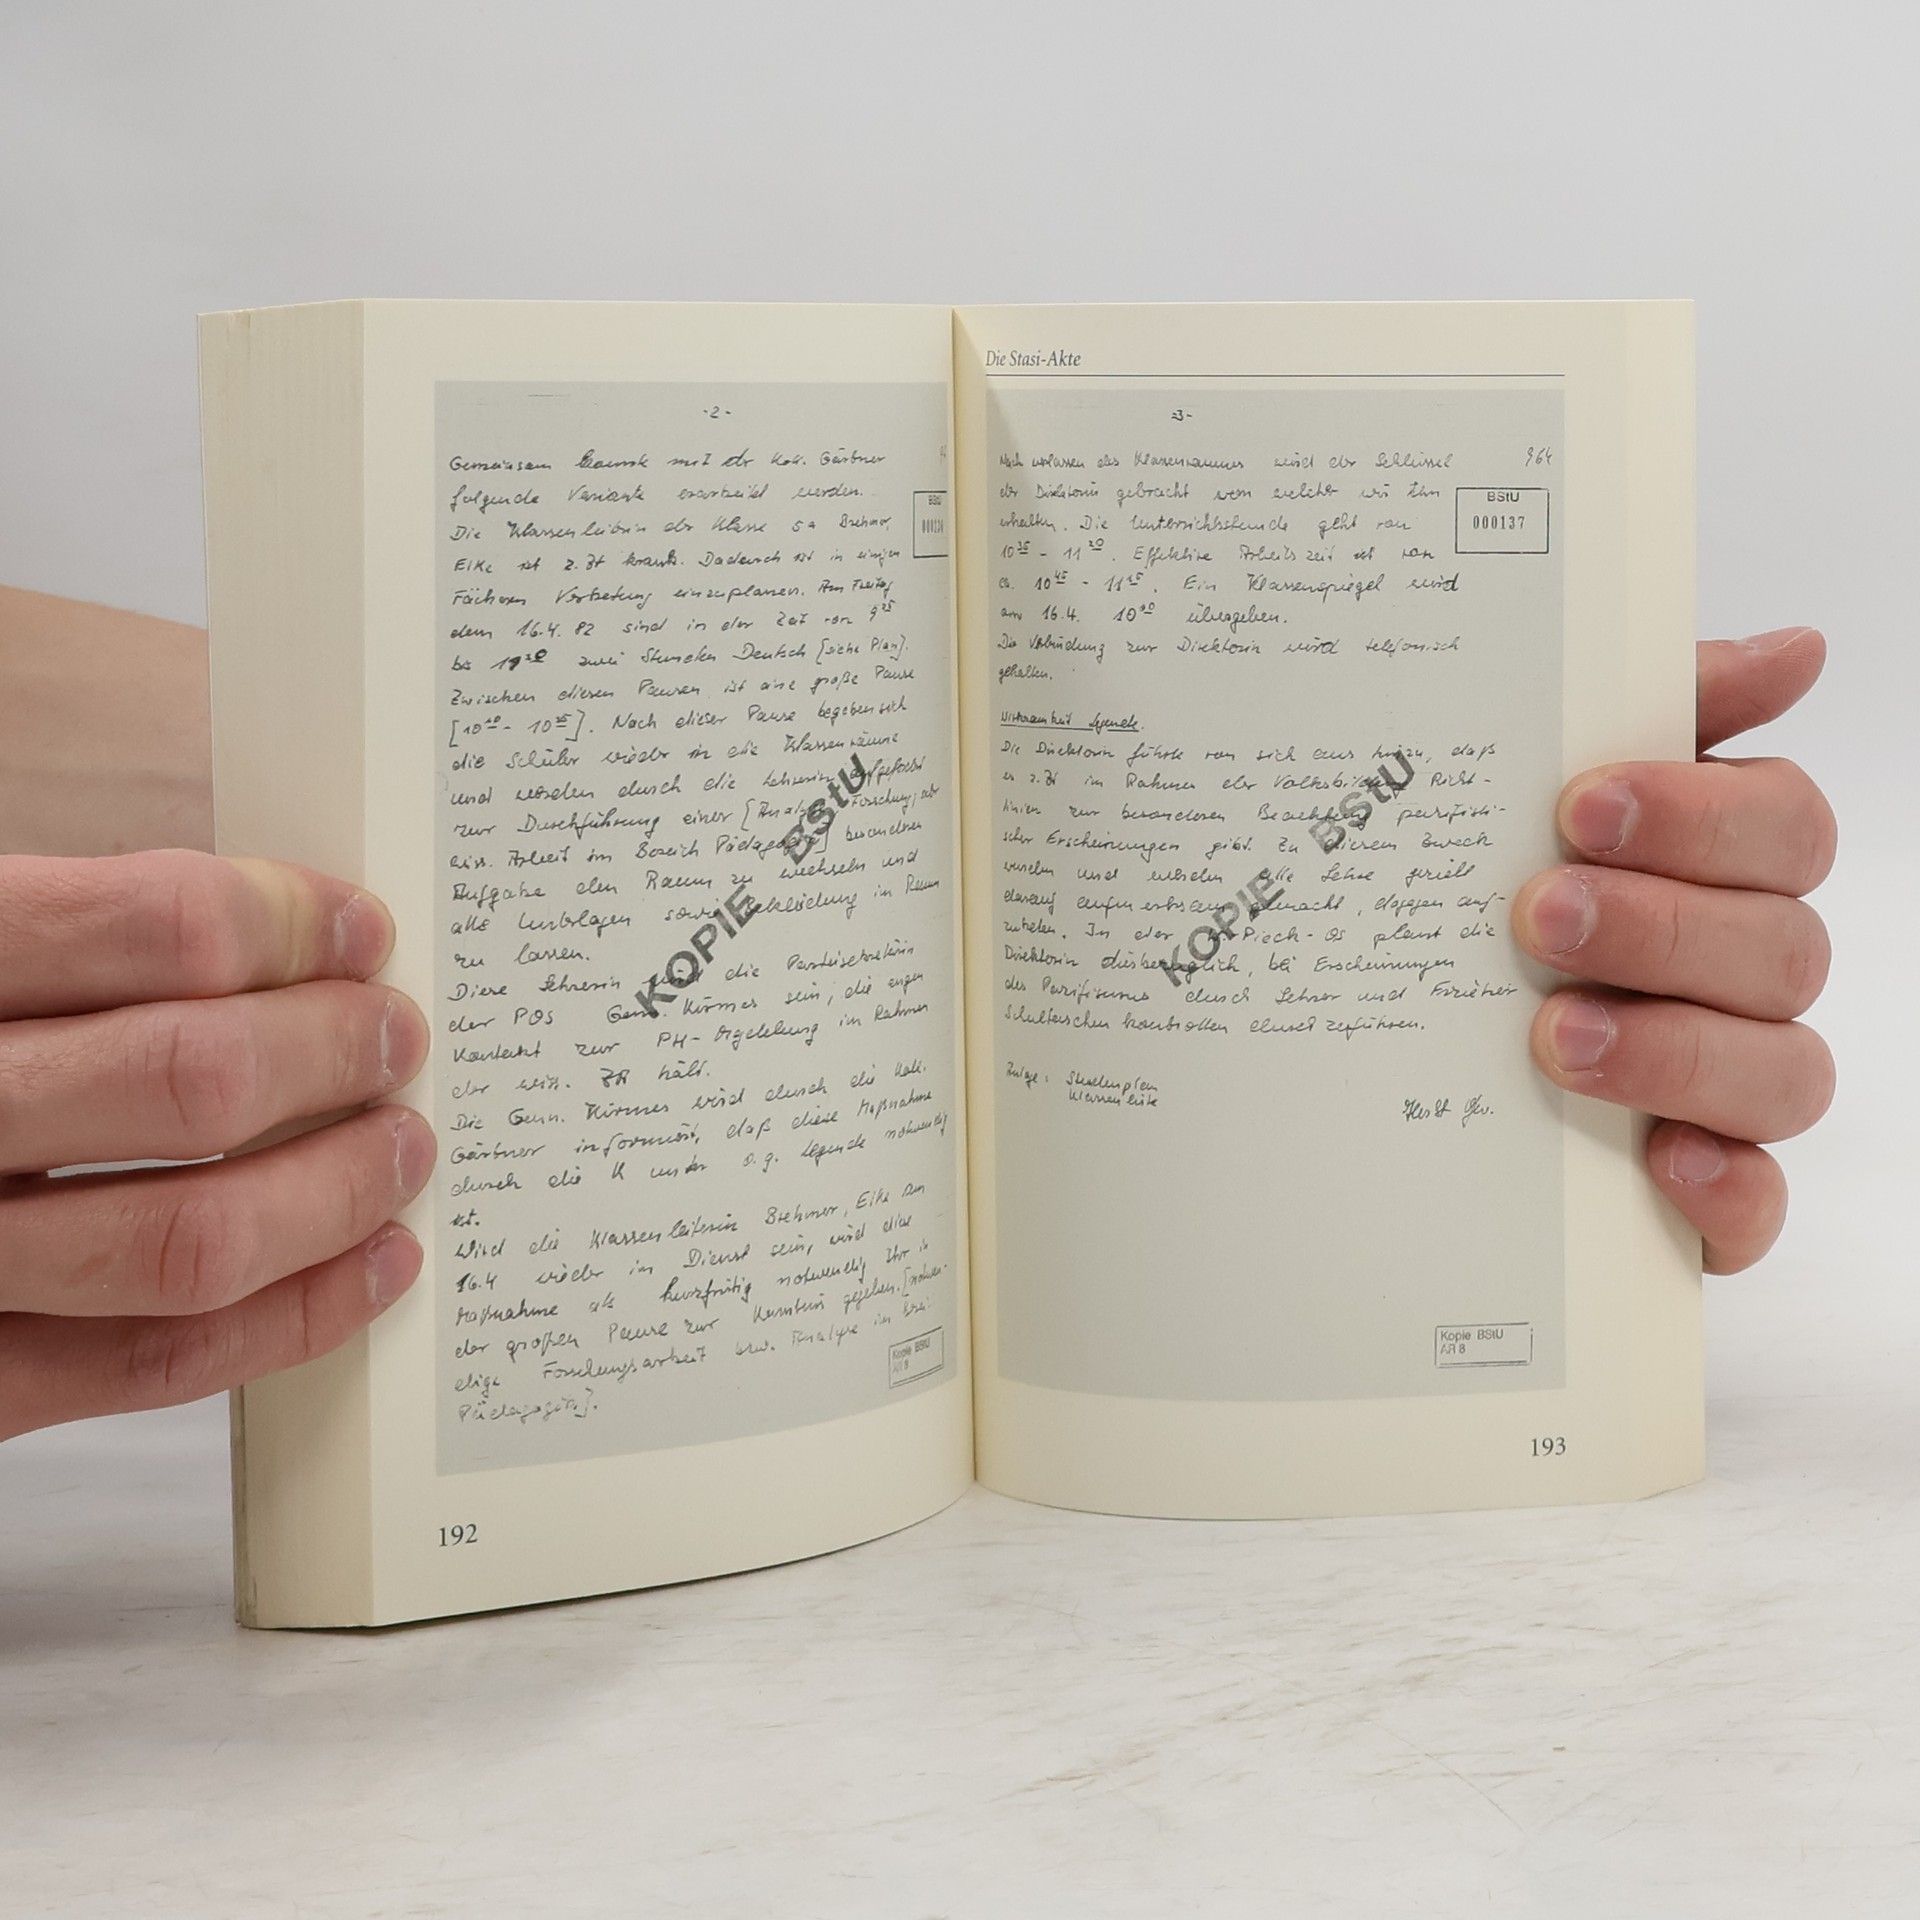 -2-
Gemeinsam konnte mit der Koll. Gärtner
folgende Variante erarbeitet werden.
Die Klassenleiterin der Klasse 5a Brehmer,
Elke ist z. Zt krank. Dadurch ist in einigen
Fächern Vertretung einzuplanen. Am Freitag
dem 16.4.82 sind in der Zeit von 9²⁵
bis 11²⁰ zwei Stunden Deutsch [siehe Plan].
Zwischen diesen Pausen ist eine große Pause
[10¹⁰ - 10³⁵]. Nach dieser Pause begeben sich
die Schüler wieder in die Klassenräume
und werden durch die Lehrerin aufgefordert
zur Durchführung einer [Analyse, Forschung, od.
wiss. Arbeit im Bereich Pädagogik] besonderen
Aufgabe den Raum zu wechseln und
alle Unterlagen sowie Bekleidung im Raum
zu lassen.
Diese Lehrerin wird die Parteisekretärin
der POS Genn. Kirmes sein, die engen
Kontakt zur PH- im Rahmen
der wiss. ZA hält.
Die Genn. Kirmes wird durch die Koll.
Gärtner informiert, daß diese Maßnahme
durch die K unter o.g. Legende notwendig
ist.
Wird die Klassenleiterin Brehmer, Elke am
16.4 wieder im Dienst sein, wird die
Maßnahme als kurzfristig notwendig Ihr in
der großen Pause zur Kenntnis gegeben. [notwen-
dige Forschungsarbeit bzw. Analyse im Ber.
Pädagogik].
BStU
KOPIE BStU
Kopie BStU
AR 8
192
Die Stasi-Akte
-3-
Nach verlassen des Klassenraumes wird der Schlüssel
der Direktorin gebracht von welcher wir Ihn
erhalten. Die Unterrichtsstunde geht von
10³⁵ - 11²⁰. Effektive Arbeitszeit ist von
ca. 10⁴⁵ - 11¹⁵. Ein Klassenspiegel wird
am 16.4. 10⁰⁰ übergeben.
Die Verbindung zur Direktorin wird telefonisch
gehalten.
964
BStU
000137
Wirksamkeit Legende.
Die Direktorin führte von sich aus hinzu, daß
es z. Zt im Rahmen der Volksbildung Richt-
linien zur besonderen Beachtung pazifisti-
scher Erscheinungen gibt. Zu diesem Zweck
wurden und werden alle Lehrer gezielt
darauf aufmerksam gemacht, dagegen auf-
zutreten. In der W.-Pieck-OS plant die
Direktorin diesbezüglich, bei Erscheinungen
des Pazifismus durch Lehrer und Erzieher
Schultaschenkontrollen durchzuführen.
Anlage: Stundenplan
Klassenliste
KOPIE BStU
Kopie BStU
AR 8
193